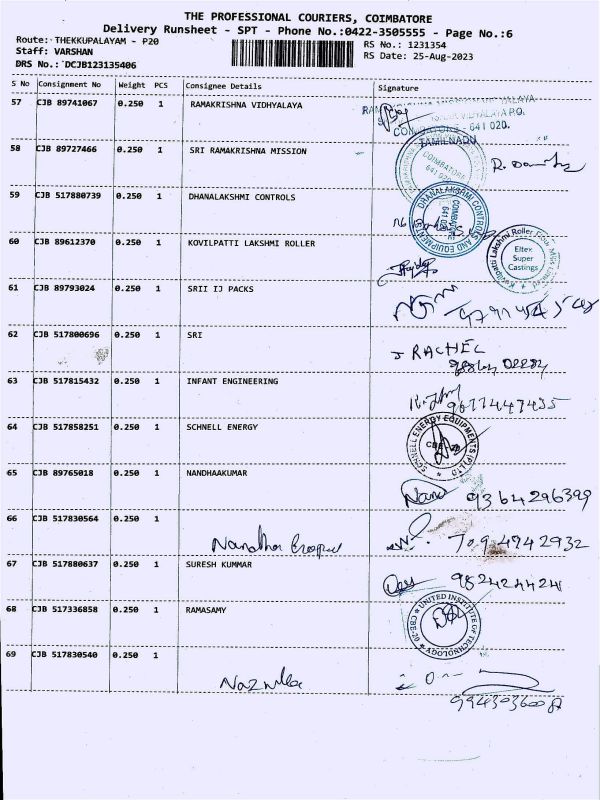 THE PROFESSIONAL COURIERS, COIMBATORE
Delivery Runsheet - SPT - Phone No.:0422-3505555 - Page No.:6
Route: THEKKUPALAYAM - P20
Staff: VARSHAN
DRS No.: DCJB123135406
RS No.: 1231354
RS Date: 25-Aug-2023
S No Consignment No Weight PCS Consignee Details Signature
57 CJB 89741067 0.250 1 RAMAKRISHNA VIDHYALAYA
COIMBATORE - 641 020.
TAMILNADU
58 CJB 89727466 0.250 1 SRI RAMAKRISHNA MISSION
COIMBATORE
641 020
59 CJB 517880739 0.250 1 DHANALAKSHMI CONTROLS
DHANALAKSHMI CONTROLS AND EQUIPMENTS
COIMBATORE
641 020
60 CJB 89612370 0.250 1 KOVILPATTI LAKSHMI ROLLER
Eltex
Super
Castings
61 CJB 89793024 0.250 1 SRII IJ PACKS
62 CJB 517800696 0.250 1 SRI
J RACHEL
63 CJB 517815432 0.250 1 INFANT ENGINEERING
9677447435
64 CJB 517858251 0.250 1 SCHNELL ENERGY
SCHNELL ENERGY EQUIPMENTS (P) LTD
65 CJB 89765018 0.250 1 NANDHAAKUMAR
Nand 9364296399
66 CJB 517830564 0.250 1
7094742932
67 CJB 517880637 0.250 1 SURESH KUMMAR
9824244241
68 CJB 517336858 0.250 1 RAMASAMY
UNITED INSTITUTE OF TECHNOLOGY
CBE-20
69 CJB 517830540 0.250 1